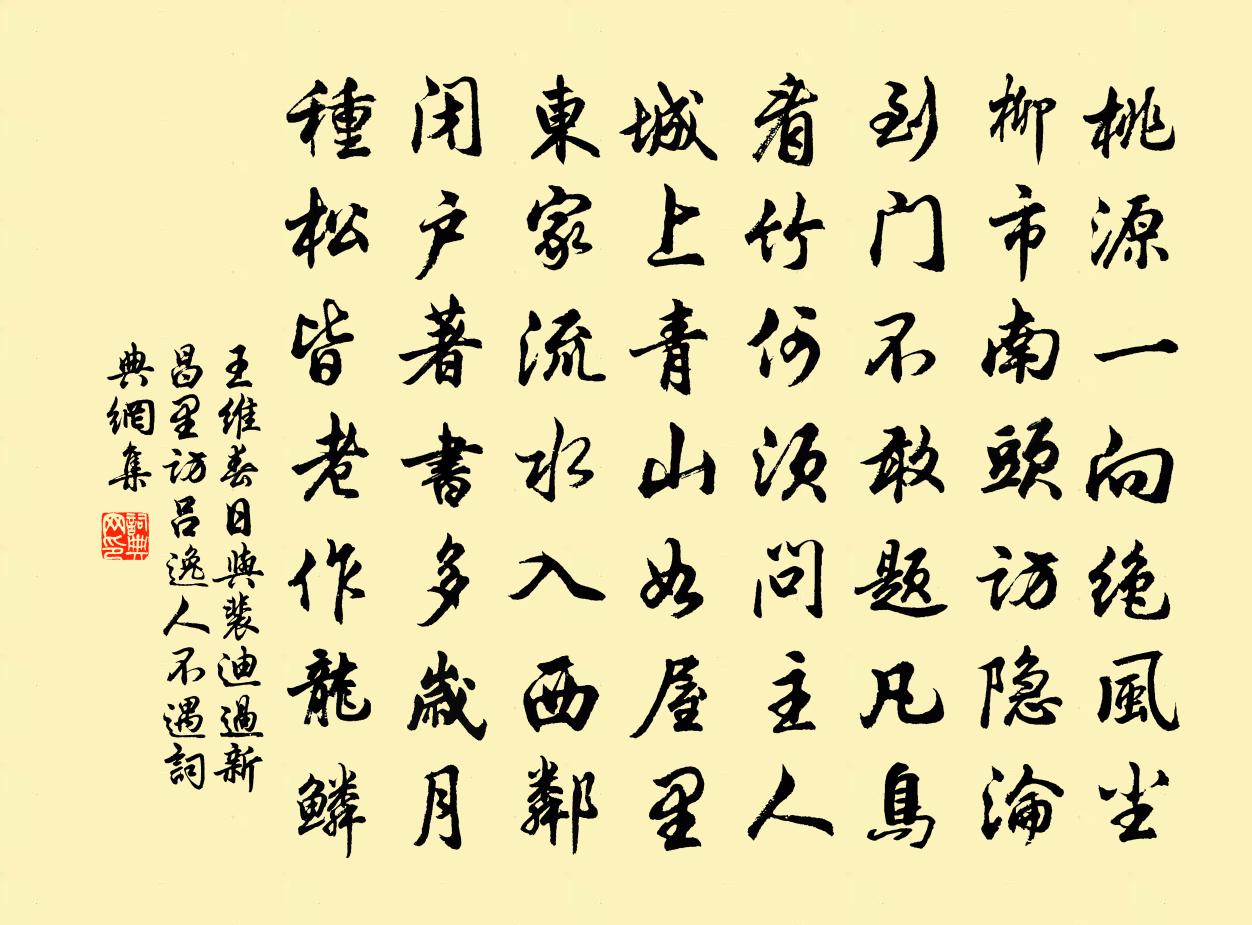 桃源一向绝風尘
柳市南頭访隐淪
到门不敢题凡鳥
看竹何须问主人
城上青山如屋里
東家流水入西鄰
闭户著書多歲月
種松皆老作龍鱗
王维春日與裴迪過新
昌里访吕逸人不遇詞
典網集
詞典
网印